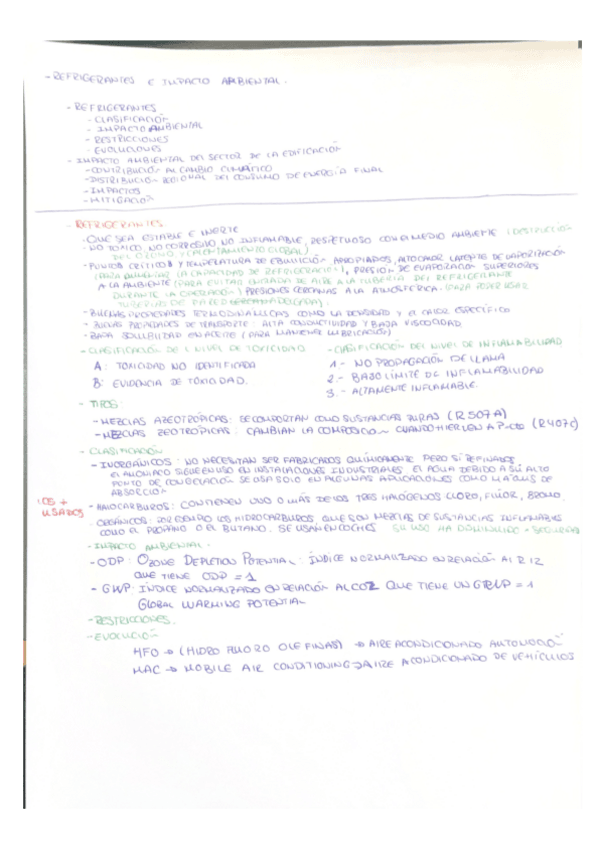 - REFRIGERANTES E IMPACTO AMBIENTAL.
- REFRIGERANTES
- CLASIFICACIÓN
- IMPACTO AMBIENTAL
- RESTRICCIONES
- EVOLUCIONES
- IMPACTO AMBIENTAL DEL SECTOR DE LA EDIFICACIÓN
- CONTRIBUCIÓN AL CAMBIO CLIMÁTICO
- DISTRIBUCIÓN REGIONAL DEL CONSUMO DE ENERGÍA FINAL
- IMPACTOS
- MITIGACIÓN
- REFRIGERANTES
- QUE SEA ESTABLE E INERTE
- NO TÓXICO, NO CORROSIVO NO INFLAMABLE, RESPETUOSO CON EL MEDIO AMBIENTE (DESTRUCCIÓN
DEL OZONO Y CALENTAMIENTO GLOBAL)
- PUNTOS CRÍTICOS Y TEMPERATURA DE EBULLICIÓN APROPIADOS, ALTO CALOR LATENTE DE VAPORIZACIÓN
(PARA AUMENTAR LA CAPACIDAD DE REFRIGERACIÓN), PRESIÓN DE EVAPORACIÓN SUPERIORES
A LA AMBIENTE (PARA EVITAR ENTRADA DE AIRE A LA TUBERÍA DEL REFRIGERANTE
DURANTE LA OPERACIÓN) PRESIONES CERCANAS A LA ATMOSFÉRICA. (PARA PODER USAR
TUBERÍAS DE PARED DELGADA)
- BUENAS PROPIEDADES TERMODINÁMICAS COMO LA DENSIDAD Y EL CALOR ESPECÍFICO
- BUENAS PROPIEDADES DE TRANSPORTE ALTA CONDUCTIVIDAD Y BAJA VISCOSIDAD
- BAJA SOLUBILIDAD EN ACEITE (PARA MANTENER LUBRICACIÓN)
- CLASIFICACIÓN DEL NIVEL DE TOXICIDAD - CLASIFICACIÓN DEL NIVEL DE INFLAMABILIDAD
A: TOXICIDAD NO IDENTIFICADA 1.- NO PROPAGACIÓN DE LLAMA
B: EVIDENCIA DE TOXICIDAD. 2.- BAJO LÍMITE DE INFLAMABILIDAD
3.- ALTAMENTE INFLAMABLE.
- TIPOS
- MEZCLAS AZEOTRÓPICAS: SE COMPORTAN COMO SUSTANCIAS PURAS (R507A)
- MEZCLAS ZEOTRÓPICAS: CAMBIAN LA COMPOSICIÓN CUANDO HIERVEN A P=CTE (R407C)
- CLASIFICACIÓN
- INORGÁNICOS: NO NECESITAN SER FABRICADOS QUÍMICAMENTE PERO SÍ REFINADOS
EL AMONIACO SIGUE EN USO EN INSTALACIONES INDUSTRIALES EL AGUA DEBIDO A SU ALTO
PUNTO DE CONGELACIÓN SE USA SOLO EN ALGUNAS APLICACIONES COMO MÁQUINAS DE
ABSORCIÓN
LOS + USADOS - HALOCARBUROS: CONTIENEN UNO O MÁS DE LOS TRES HALÓGENOS CLORO, FLÚOR, BROMO.
- ORGÁNICOS: LOS HIDROCARBUROS QUE SON MEZCLAS DE SUSTANCIAS INFLAMABLES
COMO EL PROPANO O EL BUTANO. SE USAN EN COCHES SU USO HA DISMINUIDO - SEGURIDAD
- IMPACTO AMBIENTAL
- ODP: OZONE DEPLETION POTENTIAL: ÍNDICE NORMALIZADO EN RELACIÓN AL R12
QUE TIENE ODP = 1
- GWP: ÍNDICE NORMALIZADO EN RELACIÓN AL CO2 QUE TIENE UN GWP = 1
GLOBAL WARMING POTENTIAL
- RESTRICCIONES.
- EVOLUCIÓN
HFO → (HIDRO FLUORO OLEFINAS) → AIRE ACONDICIONADO AUTOMOCIÓN
MAC → MOBILE AIR CONDITIONING → AIRE ACONDICIONADO DE VEHÍCULOS